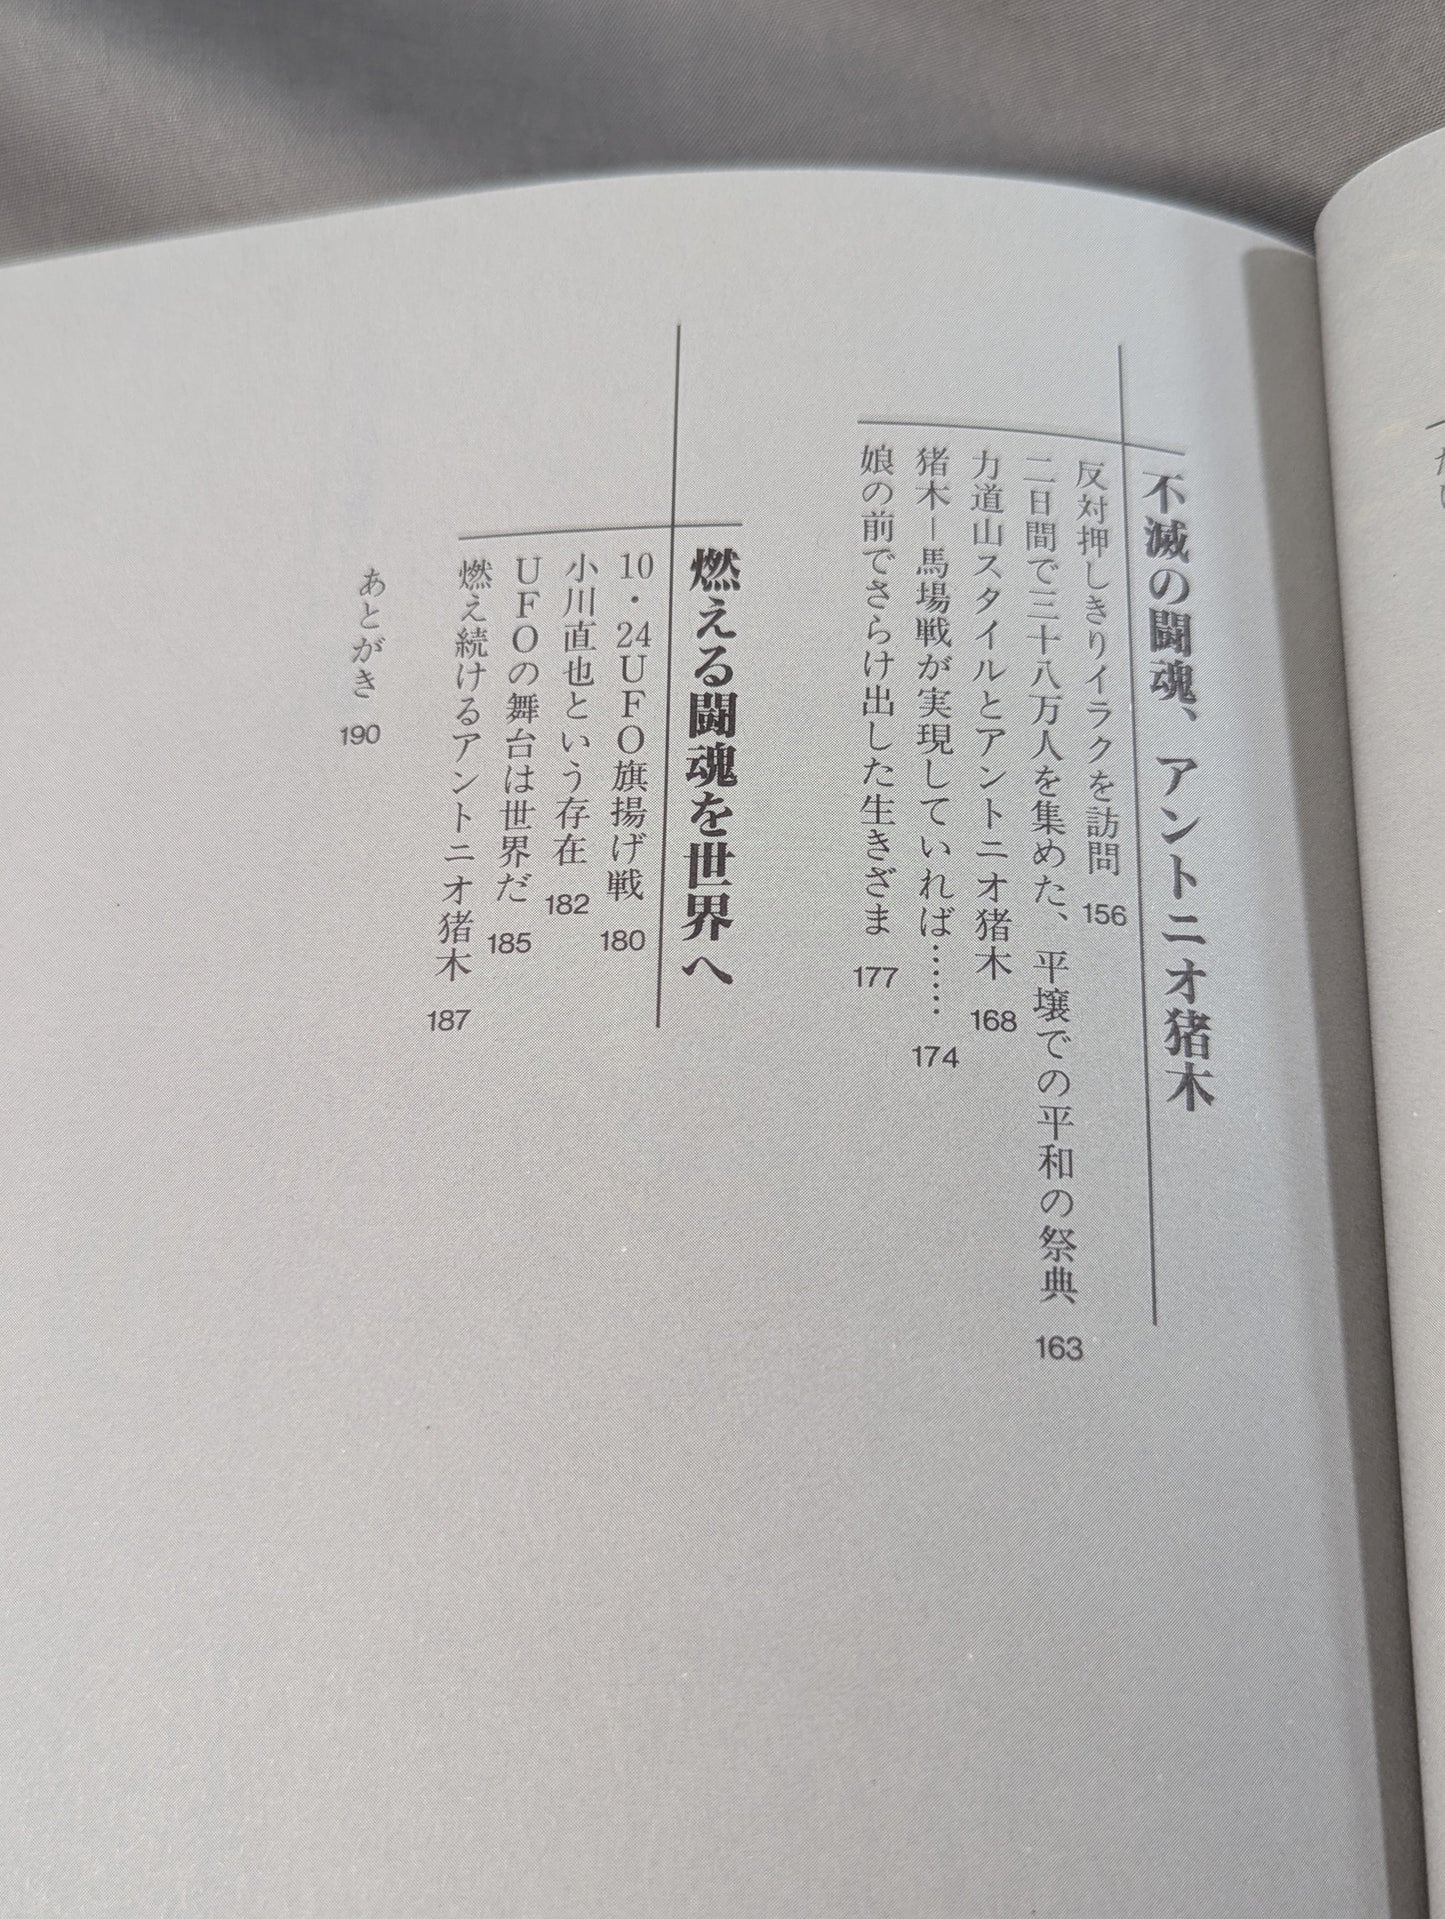 不滅の闘魂、アントニオ猪木
反対押しきりイラクを訪問 156
二日間で三十八万人を集めた、平壌での平和の祭典 163
力道山スタイルとアントニオ猪木 168
猪木―馬場戦が実現していれば…… 174
娘の前でさらけ出した生きざま 177
燃える闘魂を世界へ
10・24UFO旗揚げ戦 180
小川直也という存在 182
UFOの舞台は世界だ 185
燃え続けるアントニオ猪木 187
あとがき 190